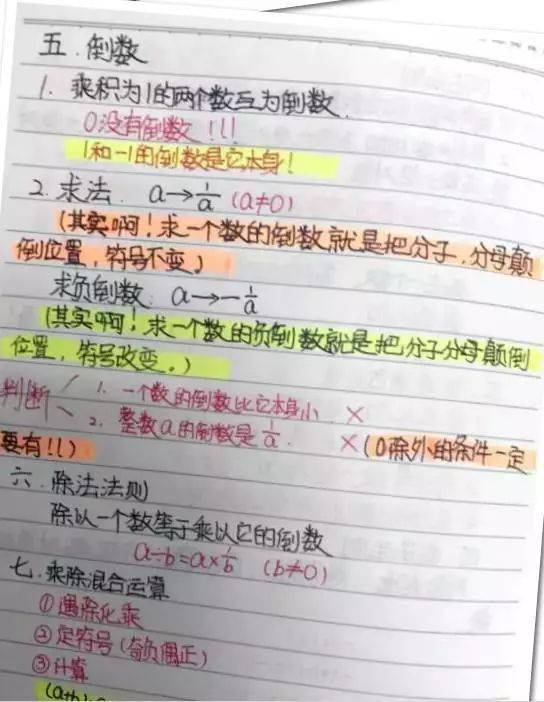 五.倒数
1. 乘积为1的两个数互为倒数.
0没有倒数!!!
1和-1的倒数是它本身!
2.求法. a→1/a (a≠0)
(其实啊!求一个数的倒数就是把分子,分母颠
倒位置,符号不变.)
求负倒数. a→-1/a
(其实啊!求一个数的负倒数就是把分子分母颠倒
位置,符号改变。)
判断 1. 一个数的倒数比它本身小. ×
2. 整数a的倒数是1/a. × (0除外的条件一定
要有!!)
六.除法法则
除以一个数等于乘以它的倒数
a÷b=a×1/b (b≠0)
七.乘除混合运算
①遇除化乘
②定符号(奇负偶正)
③计算